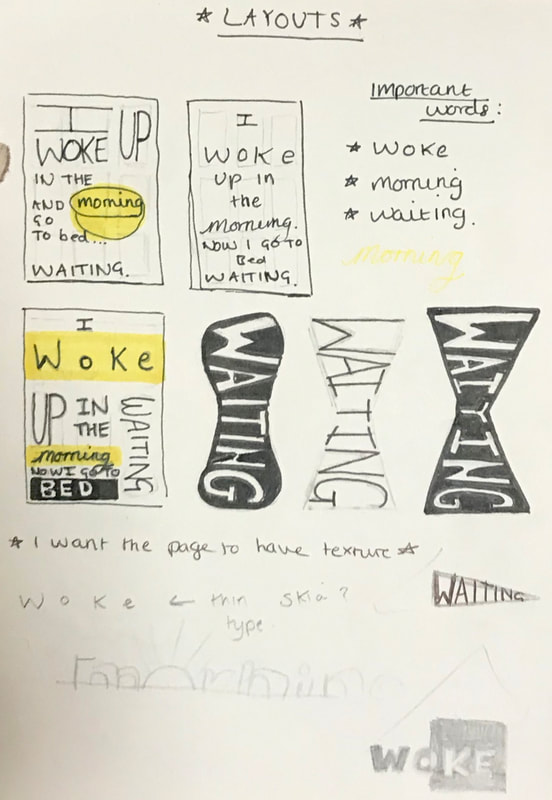 * LAYOUTS *
I
WOKE UP
IN THE
AND morning
GO
TO bed...
WAITING.
I
Woke
UP in
the
morning.
NOW I GO TO
Bed
WAITING.
Important
words:
* Woke
* morning
* waiting.
morning
I
Woke
UP IN
THE
WAITING
morning
NOW I GO TO
BED
WAITING
WAITING
WAITING
* I want the page to have texture *
WAITING
Woke ← thin
type
morning
WOKE